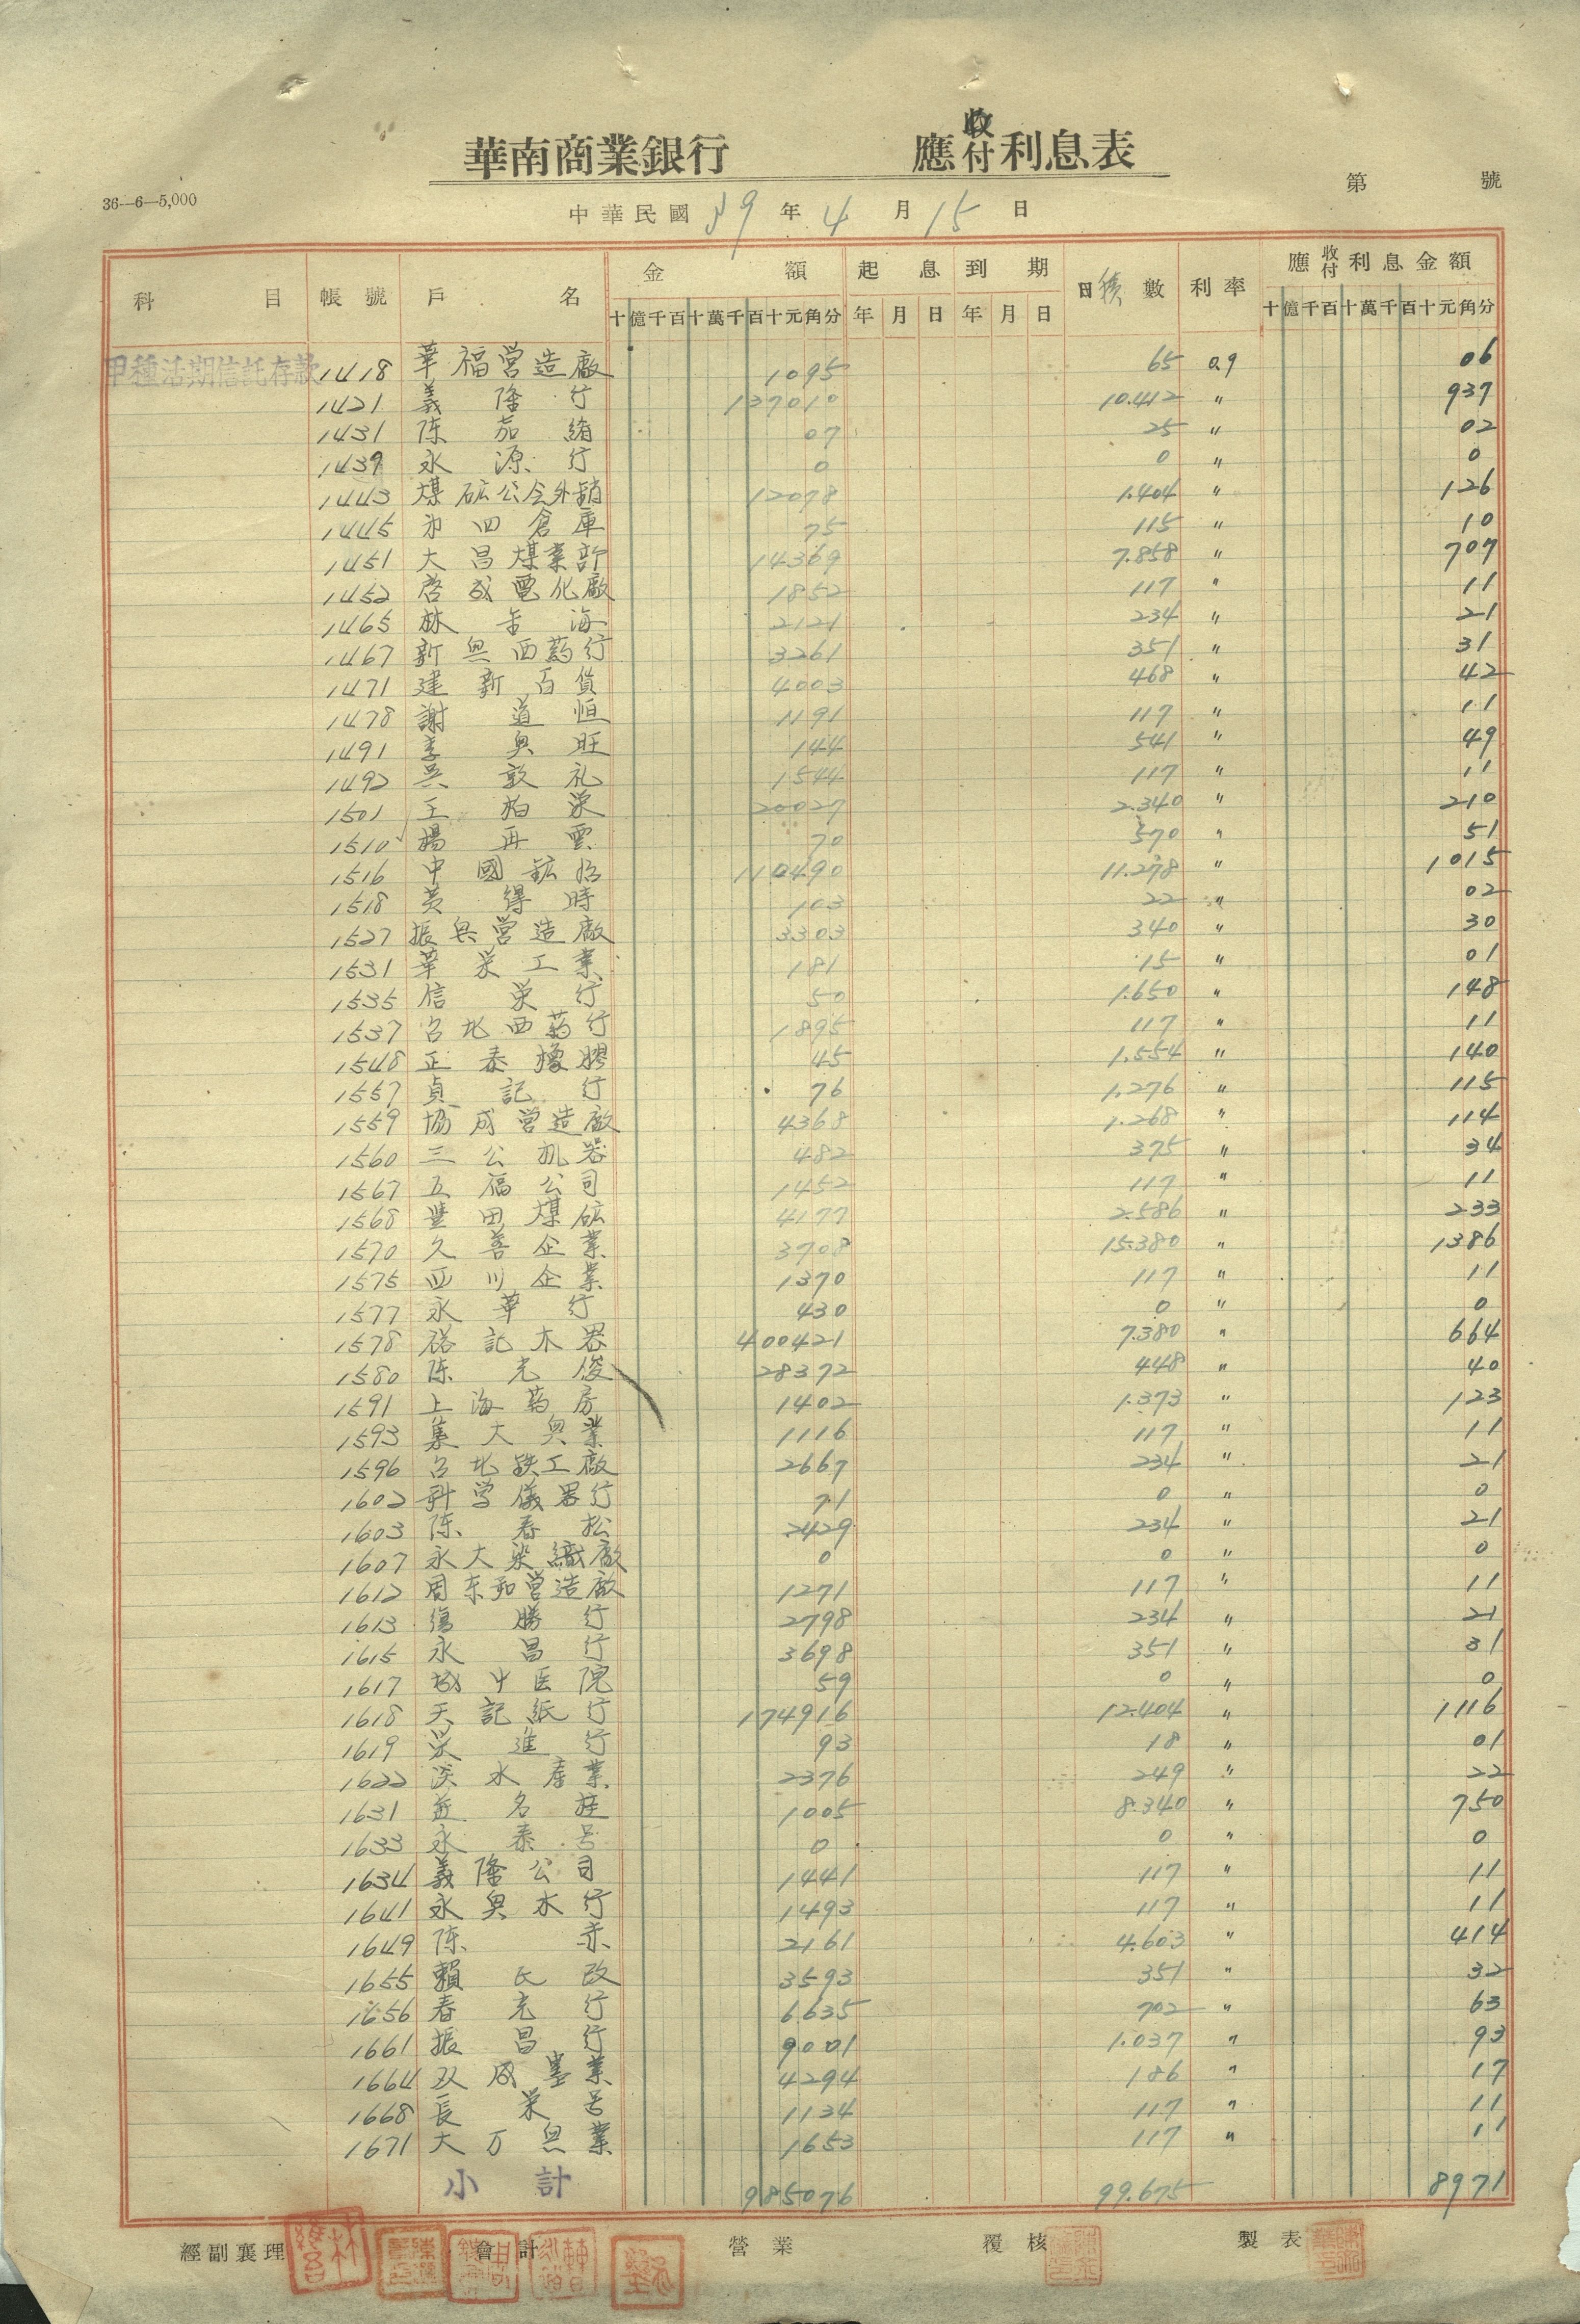 華南商業銀行 應收付利息表
36—6—5,000
第 號
中華民國 39 年 4 月 15 日
科目 帳號 戶名 金額 起息 到期 日積數 利率 應收付利息金額
十億千百十萬千百十元角分 年月日 年月日 十億千百十萬千百十元角分
甲種活期信託存款 1418 華福营造廠 1095 65 0.9 06
1421 義隆行 137010 10.412 〃 937
1431 陈茄绪 07 25 〃 02
1439 永源行 0 0 〃 0
1443 煤矿公会外銷 12078 1.404 〃 126
1445 第四倉庫 75 115 〃 10
1451 大昌煤業 14369 7.858 〃 707
1452 啓成電化廠 1852 117 〃 11
1465 林海 2121 234 〃 21
1467 新興西葯行 3261 351 〃 31
1471 建新百貨 4003 468 〃 42
1478 謝道恒 1191 117 〃 11
1491 李興旺 144 541 〃 49
1492 吳敦礼 1544 117 〃 11
1501 王柏栄 20027 2.340 〃 210
1510 楊再雲 70 570 〃 51
1516 中國鉱冶 110490 11.278 〃 1015
1518 黃得時 103 22 〃 02
1527 振興营造廠 3303 340 〃 30
1531 華栄工業 181 15 〃 01
1535 信栄行 50 1.650 〃 148
1537 台北西葯行 1895 117 〃 11
1548 正泰橡膠 45 1.554 〃 140
1557 貞記行 76 1.276 〃 115
1559 協成营造廠 4368 1.268 〃 114
1560 三公机器 482 375 〃 34
1567 五福公司 1452 117 〃 11
1568 豊田煤矿 4177 2.586 〃 233
1570 久善企業 3708 15.380 〃 1386
1575 四川企業 1370 117 〃 11
1577 永華行 430 0 〃 0
1578 裕記木器 400421 7.380 〃 664
1580 陈光俊 28372 448 〃 40
1591 上海葯房 1402 1.373 〃 123
1593 集大興業 1116 117 〃 11
1596 台北鉄工廠 2667 234 〃 21
1602 科学儀器行 71 0 〃 0
1603 陈春松 2429 234 〃 21
1607 永大染織廠 0 0 〃 0
1612 周东和营造廠 1271 117 〃 11
1613 勝行 2798 234 〃 21
1615 永昌行 3698 351 〃 31
1617 城中医院 59 0 〃 0
1618 天記紙行 174916 12.404 〃 1116
1619 栄進行 93 18 〃 01
1622 淡水産業 2376 249 〃 22
1631 名桂 1005 8.340 〃 750
1633 永泰号 0 0 〃 0
1634 義隆公司 1441 117 〃 11
1641 永興木行 1493 117 〃 11
1649 陈赤 2161 4.603 〃 414
1655 賴氏改 3593 351 〃 32
1656 春光行 6635 702 〃 63
1661 振昌行 9001 1.037 〃 93
1664 双成墨業 4294 186 〃 17
1668 長栄号 1134 117 〃 11
1671 大万興業 1653 117 〃 11
小計 985076 99.675 8971
經副襄理 會計 營業 覆核 製表